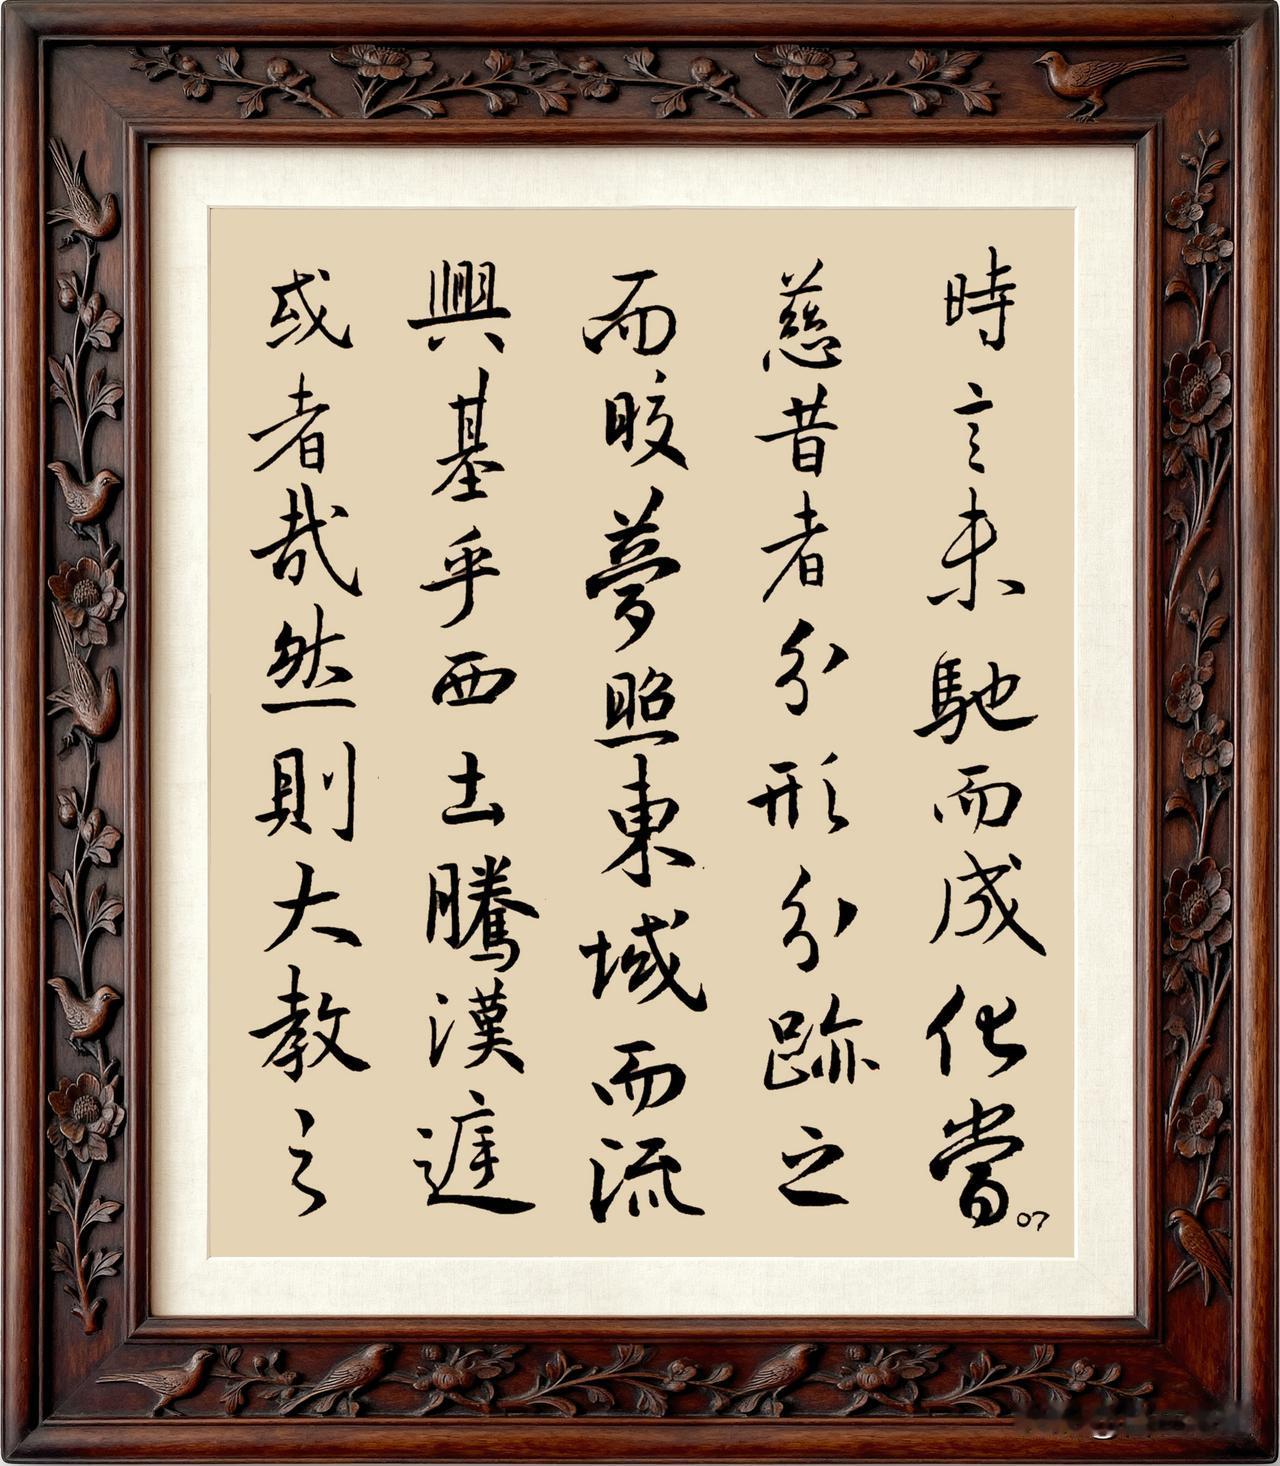 或者哉然則大教之
興基乎西土騰漢庭
而皎夢照東域而流
慈昔者分形分跡之
時言未馳而成化當
07